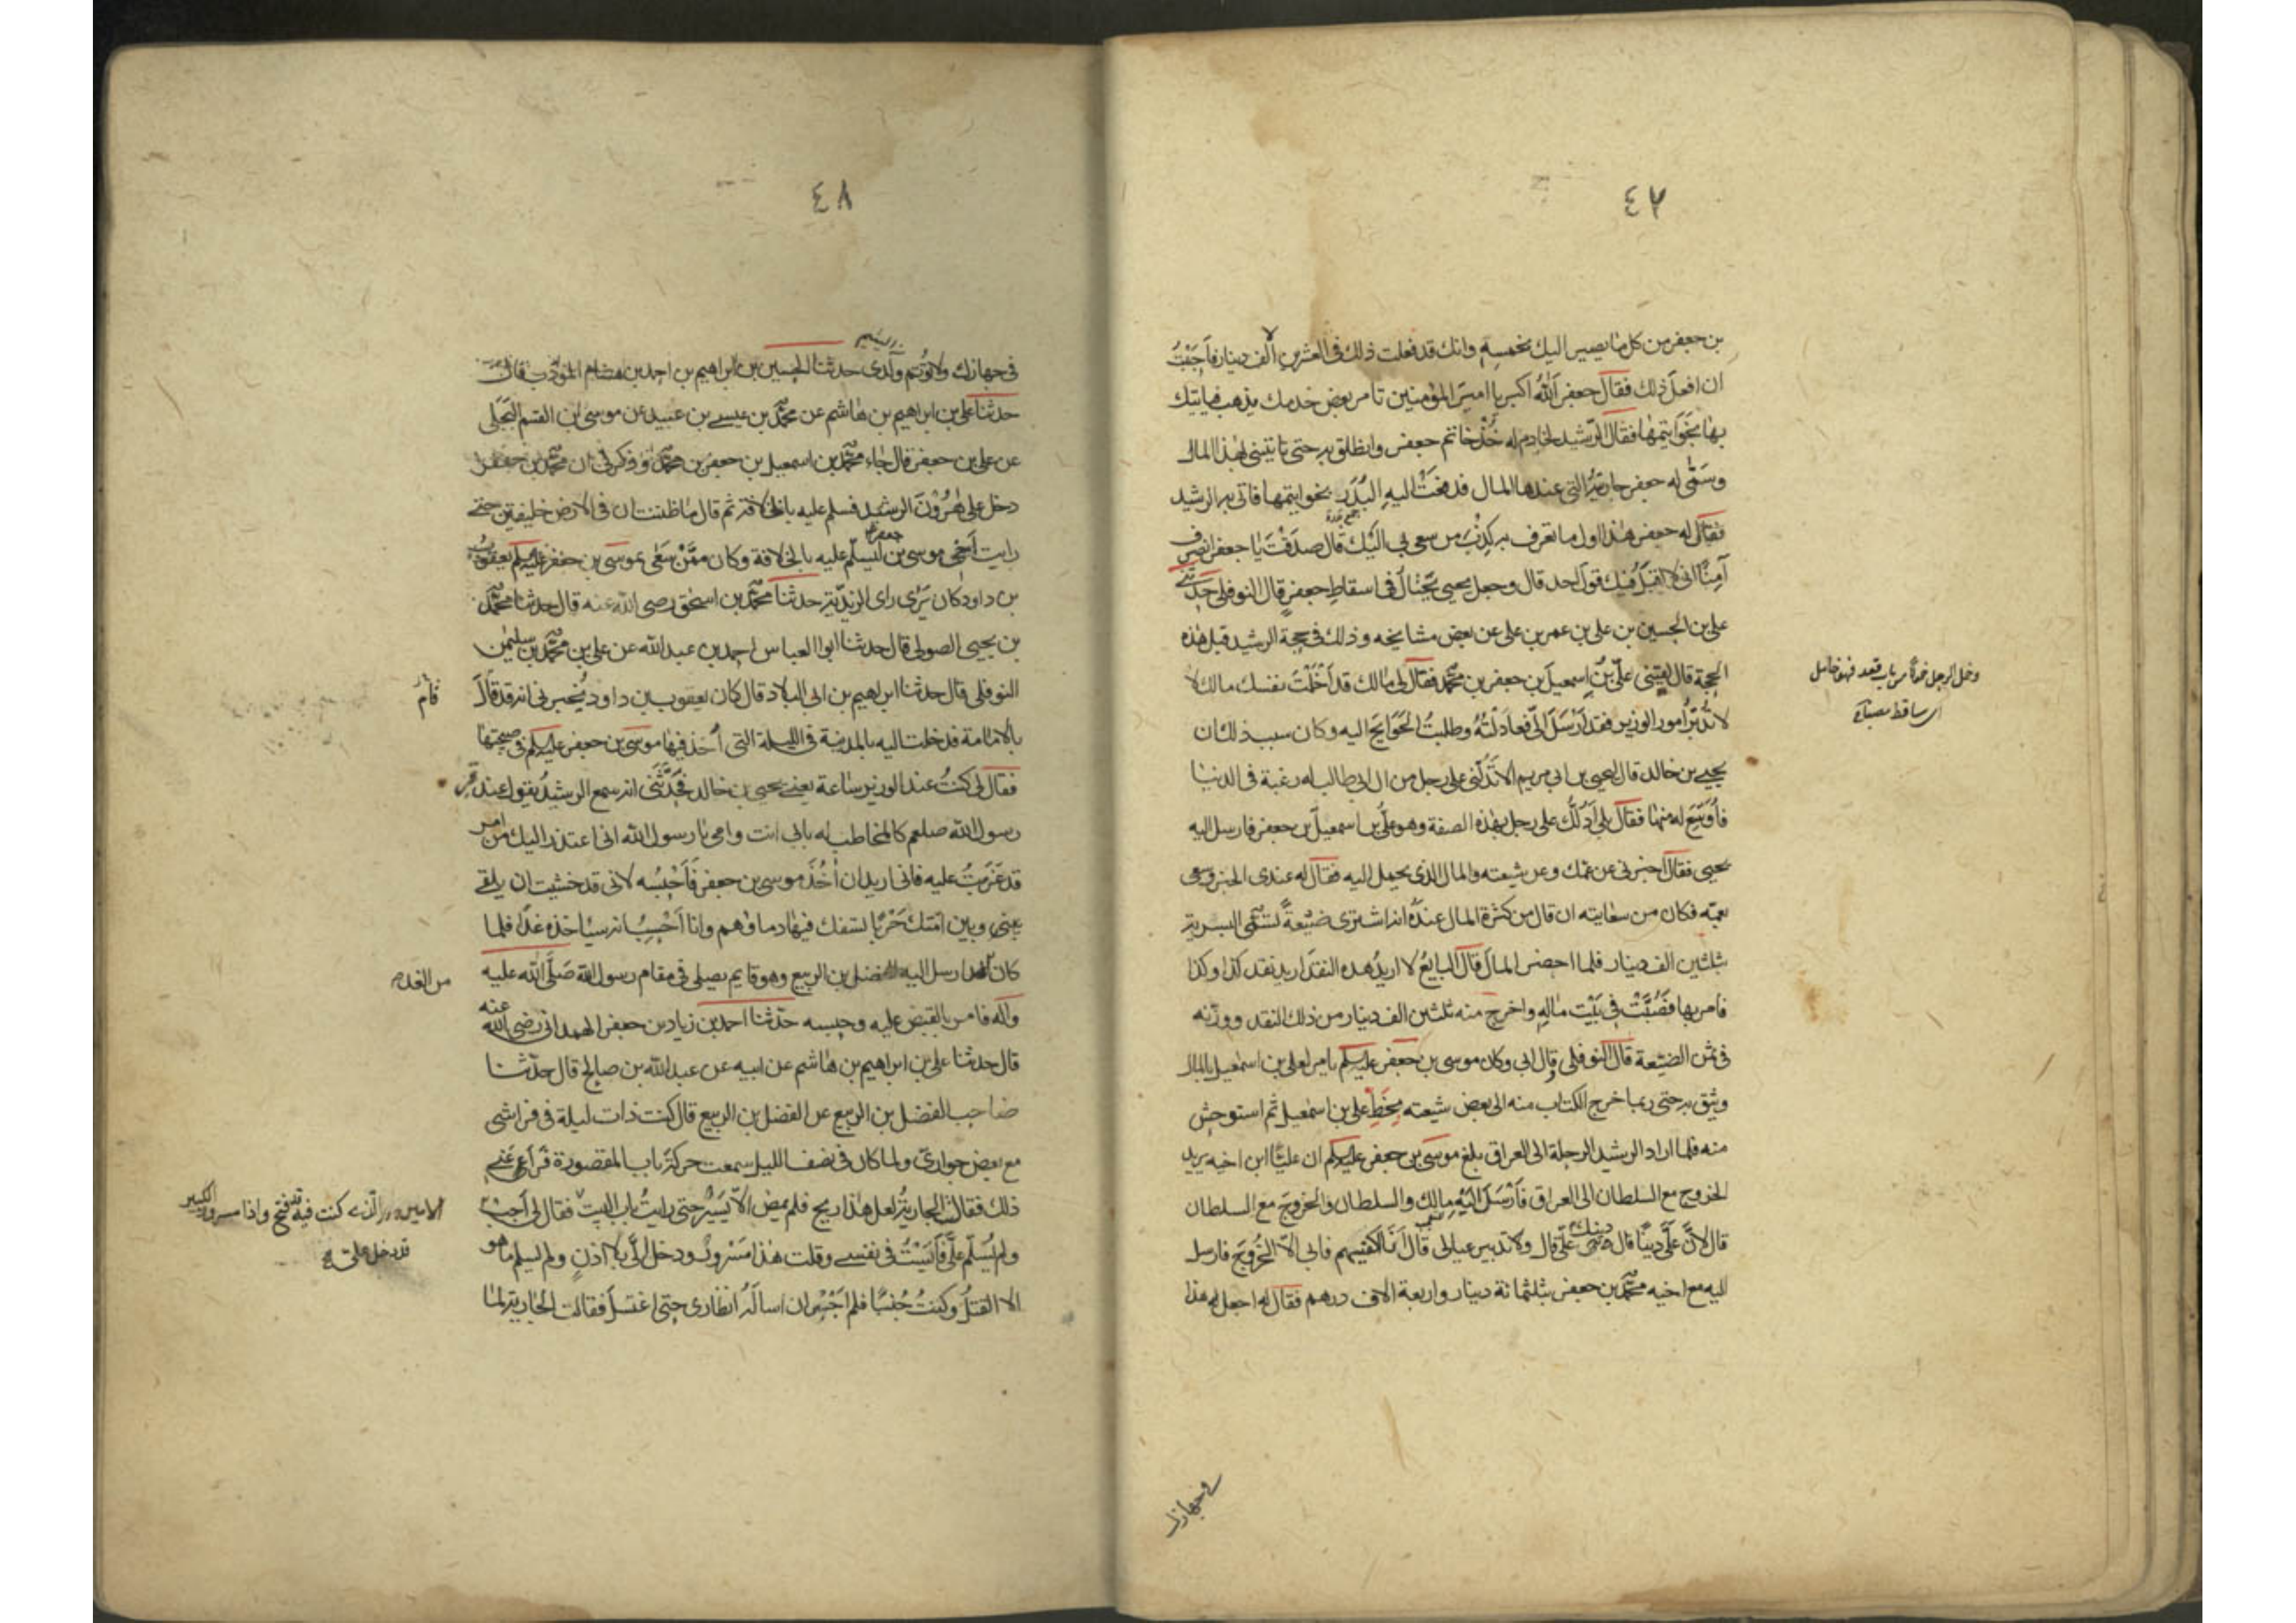 ٤٧
بن جعفر من كل ما يصير اليك بخمسه وانك قد فعلت ذلك فى العشرين الالف دينار فاحببت
ان افعل ذلك فقال جعفر الله اكبر يا امير المؤمنين تامر بعض خدمك يذهب فياتيك
بها بخواتيمها فقال الرشيد لخادم له خذ خاتم جعفر وانطلق به حتى تاتينى بهذا المال
وسمى له جعفر جاريته التى عندها المال فدفعت اليه البدر بخواتيمها فاتى به الرشيد
جمع بدرة
فقال له جعفر هذا اول ما تعرف به كذب من سعى بى اليك قال صدقت يا جعفر انصرف
آمنا انى لا اقبل فيك قول احد قال وجعل يحيى يحتال فى اسقاط جعفر قال النوفلى حدثنى
على بن الحسين بن على بن عمر بن على عن بعض مشايخه وذلك فى حجة الرشيد قبل هذه
الحجة قال لقينى على بن اسمعيل بن جعفر بن محمد فقال لى مالك قد اخملت نفسك مالك لا
لا تدبر امور الوزير فقد ارسل الى فعادلته وطلبت الحوايج اليه وكان سبب ذلك ان
يحيى بن خالد قال ليحيى بن ابى مريم الا تدلنى على رجل من ال ابى طالب له رغبة فى الدنيا
فاوسع له منها فقال بلى ادلك على رجل بهذه الصفة وهو على بن اسمعيل بن جعفر فارسل اليه
يحيى فقال اخبرنى عن عمك وعن شيعته والمال الذى يحمل اليه فقال له عندى الخبر وسعى
بعمه فكان من سعايته ان قال من كثرة المال عنده انه اشترى ضيعة تسمى اليسرية
بثلثين الف دينار فلما احضر المال قال البايع لا اريد هذه النقد اريد نقد كذا وكذا
فامر بها فصبت فى بيت ماله واخرج منه ثلثين الف دينار من ذلك النقد ووزنه
فى ثمن الضيعة قال النوفلى قال ابى وكان موسى بن جعفر عليه السلم يامر لعلى بن اسمعيل بالمال
ويثق به حتى ربما خرج الكتاب منه الى بعض شيعته بخط على بن اسمعيل ثم استوحش
منه فلما اراد الرشيد الرحلة الى العراق بلغ موسى بن جعفر عليه السلم ان عليا ابن اخيه يريد
الخروج مع السلطان الى العراق فارسل اليه مالك والسلطان والخروج مع السلطان
قال لان على دينا قال دينك على قال ولا تدبير عيالى قال انا اكفيهم فابى الا الخروج فارسل
اليه مع اخيه محمد بن جعفر بثلثمائة دينار واربعة الاف درهم فقال له اجعل له هذا
خمل الرجل خمولا من باب قعد فهو خامل
اى ساقط
فى جهازك
٤٨
فى جهازك ولا توتم ولدى حدثنا الحسين بن ابراهيم بن احمد بن هشام المؤدب قال
حدثنا على بن ابراهيم بن هاشم عن محمد بن عيسى بن عبيد عن موسى ابن القسم البجلى
عن على بن جعفر قال جاء محمد بن اسمعيل بن جعفر بن محمد وذكر لى ان محمد بن جعفر
دخل على هرون الرشيد فسلم عليه بالخلافة ثم قال ما ظننت ان فى الارض خليفتين حتى
رايت اخى موسى بن جعفر يسلم عليه بالخلافة وكان ممن سعى بموسى بن جعفر عليه السلم يعقوب
بن داود كان يرى راى الزيدية حدثنا محمد بن اسحق رضى الله عنه قال حدثنا محمد
بن يحيى الصولى قال حدثنا ابوا العباس احمد بن عبد الله عن على بن محمد بن سليمن
النوفلى قال حدثنا ابراهيم بن ابى البلاد قال كان يعقوب بن داود يخبرنى انه قد قال
بالامامة فدخلت اليه بالمدينة فى الليلة التى اخذ فيها موسى بن جعفر عليه السلم فى صبيحتها
فقال لى كنت عند الوزير ساعة يعنى يحيى بن خالد فحدثنى انه سمع الرشيد يقول عند قبر
رسول الله صلعم كالمخاطب له بابى انت وامى يا رسول الله انى اعتذر اليك من امر
قد عزمت عليه فانى اريد ان اخذ موسى بن جعفر فاحبسه لانى قد خشيت ان يلقى
بينى وبين امتك حربا تسفك فيها دماؤهم وانا احسب انه سياخذه غدا فلما
كان الغد ارسل اليه الفضل بن الربيع وهو قايم يصلى فى مقام رسول الله صلى الله عليه
وآله فامر بالقبض عليه وحبسه حدثنا احمد بن زياد بن جعفر الهمدانى رضى الله عنه
قال حدثنا على بن ابراهيم بن هاشم عن ابيه عن عبد الله بن صالح قال حدثنا
صاحب الفضل بن الربيع عن الفضل بن الربيع قال كنت ذات ليلة فى فراشى
مع بعض جوارى ولما كان فى نصف الليل سمعت حركة باب المقصورة فراعنى
ذلك فقالت الجارية لعل هذا ريح فلم يمض الا يسير حتى رايت باب البيت فقال لى اجب
ولم يسلم على فأيست فى نفسى وقلت هذا مسرور ودخل الى بلا اذن ولم يسلم ما هو
الا القتل وكنت جنبا فلم اجسر ان اسأله انظارى حتى اغتسل فقالت الجارية لما
قام
من الغد
الذى كنت فيه قد فتح واذا مسرور الكبير
قد دخل على